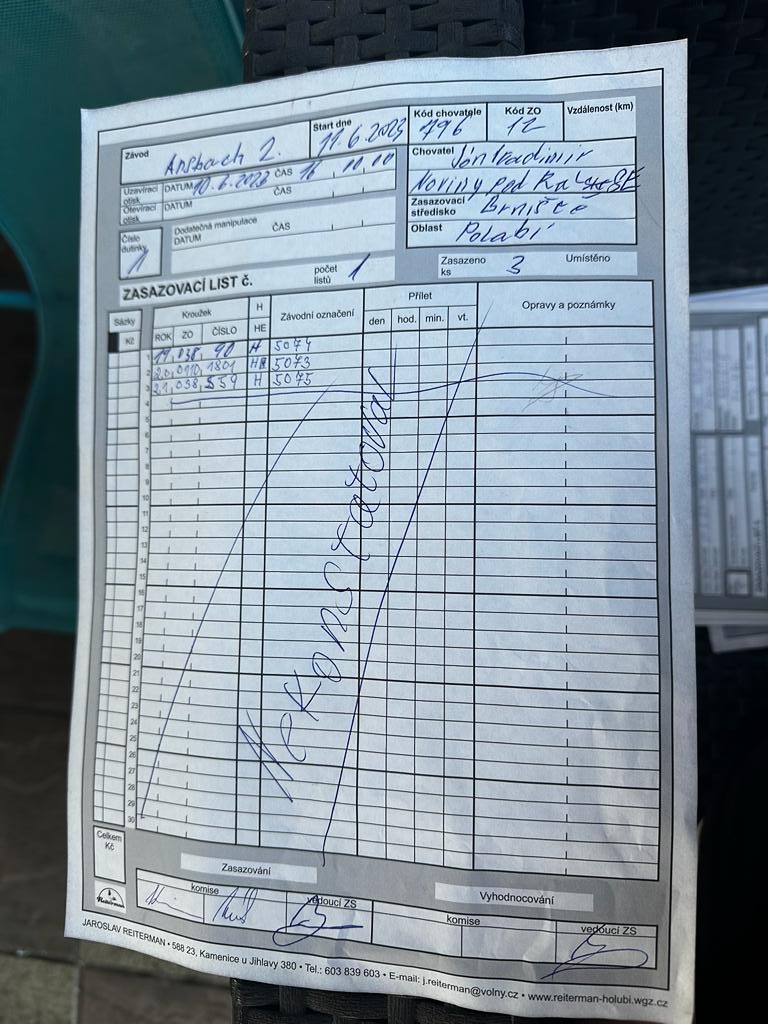 Závod Ansbach 2.
Start dne 11.6.2023
Kód chovatele 796
Kód ZO 12
Vzdálenost (km)
Uzavírací otisk DATUM 10.6.2023 ČAS 16 00 00
Otevírací otisk DATUM ČAS
Chovatel Ján Vladimír
Noviny pod
Zasazovací středisko Brniště
Oblast Polabí
Číslo dutinky 1
Dodatečná manipulace
DATUM ČAS
ZASAZOVACÍ LIST č.
počet listů 1
Zasazeno ks 3
Umístěno
Sázky Kroužek H Závodní označení Přílet Opravy a poznámky
Kč ROK ZO ČÍSLO HE den hod. min. vt.
1 19 038 90 H 5074
2 20 0110 1801 5073
3 21 038 559 H 5075
4
5
6
7
8
9
10
11
12
13
14
15
16
17
18
19
20
21
22
23
24
25
26
27
28
29
30
Nekonstatoval
Celkem Kč
Zasazování
Vyhodnocování
komise vedoucí ZS komise vedoucí ZS
Reiterman
JAROSLAV REITERMAN • 588 23, Kamenice u Jihlavy 380 • Tel.: 603 839 603 • E-mail: j.reiterman@volny.cz • www.reiterman-holubi.wgz.cz